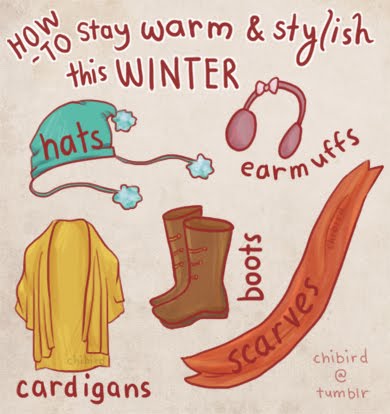 HOW
-TO stay warm & stylish
this WINTER
hats
earmuffs
cardigans
chibird
boots
scarves
chibird
chibird
@
tumblr